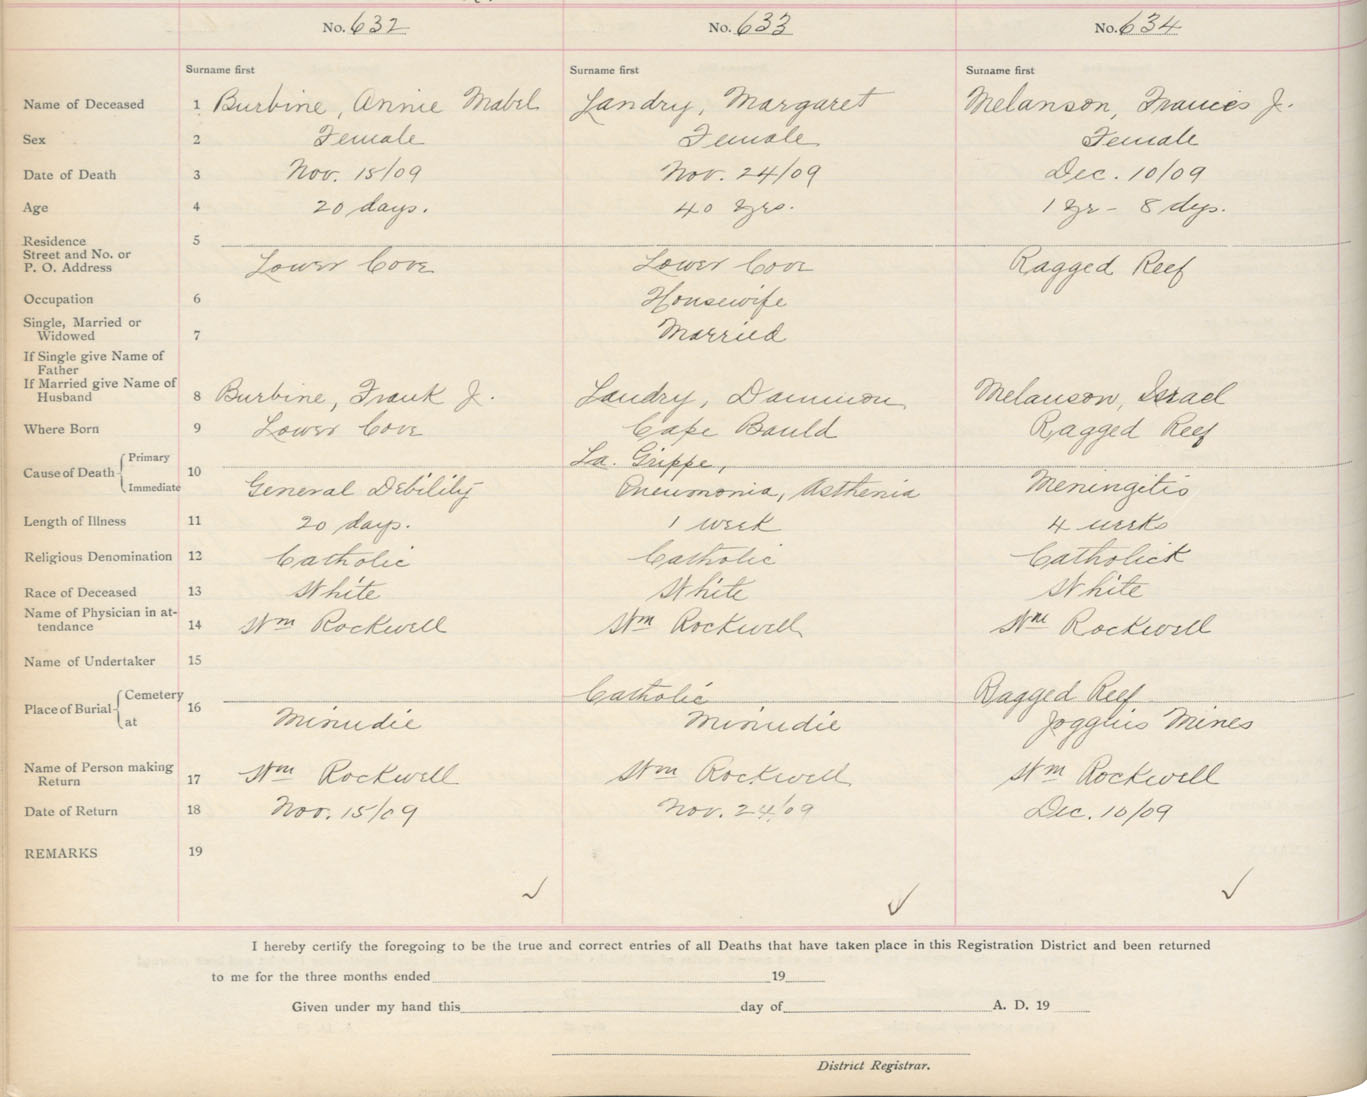 No. 632 No. 633 No. 634
Surname first Surname first Surname first
Name of Deceased 1 Burbine, Annie Mabel Landry, Margaret Melanson, Frances J.
Sex 2 Female Female Female
Date of Death 3 Nov. 15/09 Nov. 24/09 Dec. 10/09
Age 4 20 days. 40 yrs. 1 yr - 8 dys.
Residence 5
Street and No. or
P. O. Address Lower Cove Lower Cove Ragged Reef
Occupation 6 Housewife
Single, Married or
Widowed 7 Married
If Single give Name of
Father
If Married give Name of
Husband 8 Burbine, Frank J. Landry, Dammon Melanson, Israel
Where Born 9 Lower Cove Cape Bauld Ragged Reef
Cause of Death Primary 10 La. Grippe,
Immediate General Debility Pneumonia, Asthenia Meningitis
Length of Illness 11 20 days. 1 week 4 weeks
Religious Denomination 12 Catholic Catholic Catholick
Race of Deceased 13 White White White
Name of Physician in at-
tendance 14 Wm Rockwell Wm Rockwell Wm Rockwell
Name of Undertaker 15
Place of Burial Cemetery 16 Catholic Ragged Reef
at Minudie Minudie Joggins Mines
Name of Person making
Return 17 Wm Rockwell Wm Rockwell Wm Rockwell
Date of Return 18 Nov. 15/09 Nov. 24/09 Dec. 10/09
REMARKS 19
I hereby certify the foregoing to be the true and correct entries of all Deaths that have taken place in this Registration District and been returned
to me for the three months ended 19
Given under my hand this day of A. D. 19
District Registrar.